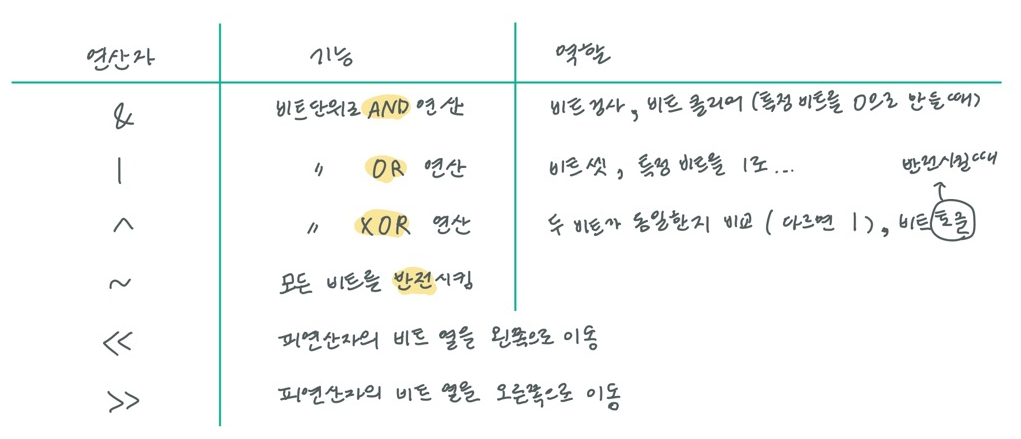 연산자 기능 역할
& 비트단위로 AND 연산 비트검사, 비트 클리어 (특정비트를 0으로 만들때)
| 〃 OR 연산 비트셋, 특정 비트를 1로... 반전시킬때
^ 〃 XOR 연산 두 비트가 동일한지 비교 ( 다르면 1 ), 비트토글
~ 모든 비트를 반전시킴
<< 피연산자의 비트 열을 왼쪽으로 이동
>> 피연산자의 비트 열을 오른쪽으로 이동